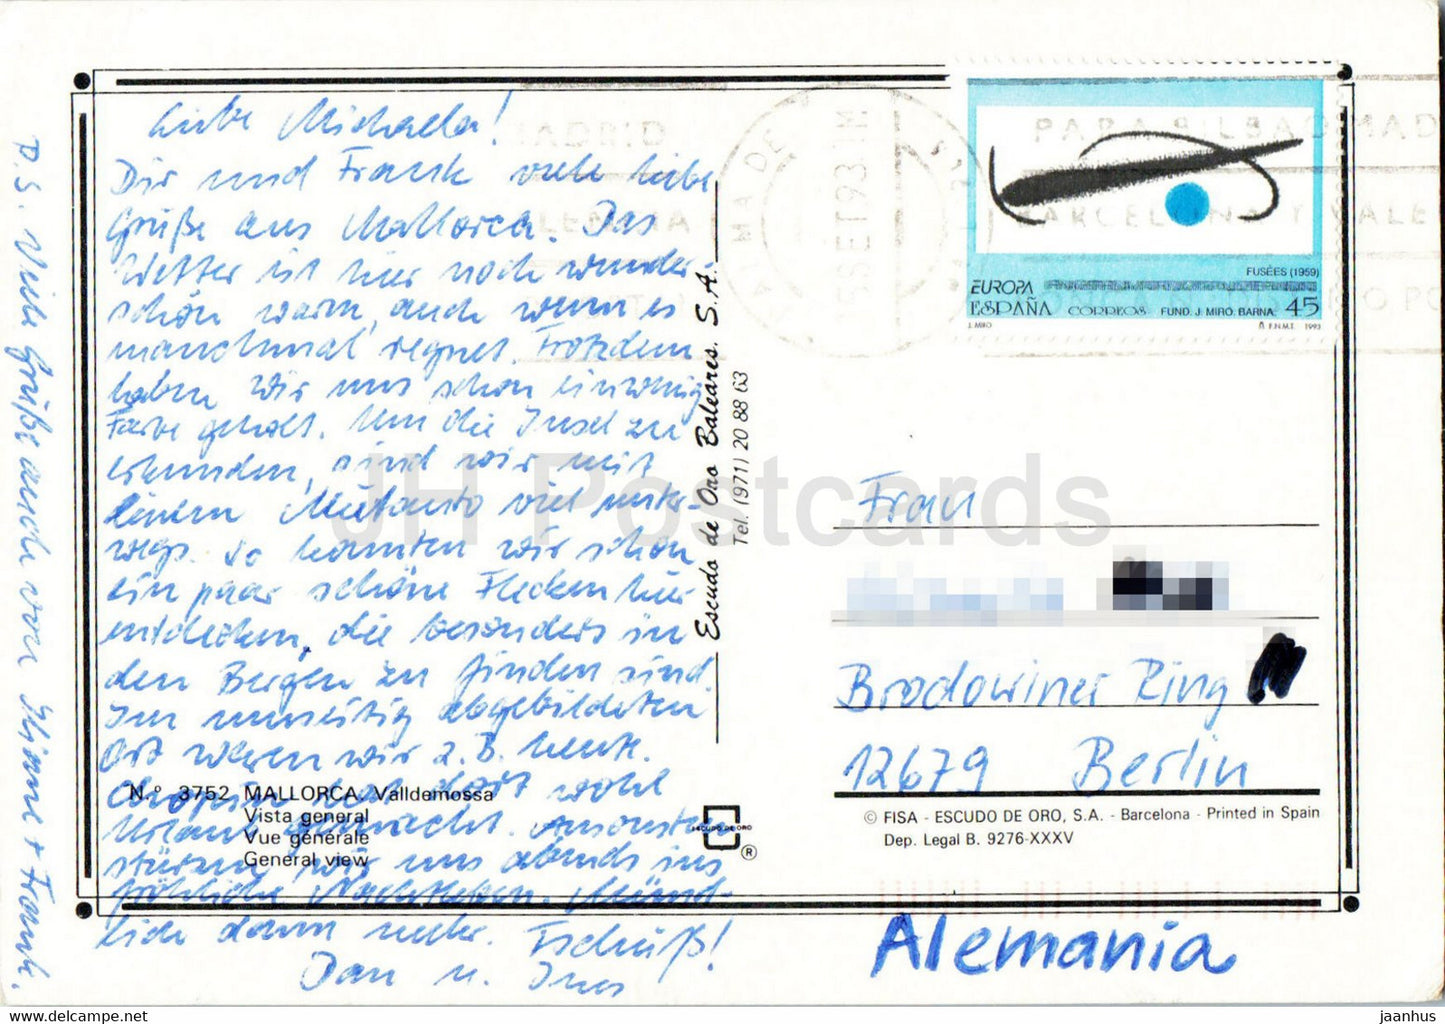 Liebe Michaela!
Dir und Frank viele liebe
Grüße aus Mallorca. Das
Wetter ist hier noch wunder-
schön warm, auch wenn es
manchmal regnet. Trotzdem
haben wir uns schon ein wenig
Farbe geholt. Um die Insel zu
erkunden, sind wir mit
einem Mietauto viel unter-
wegs. So konnten wir schon
ein paar schöne Flecken hier
entdecken, die besonders in
den Bergen zu finden sind.
Im umseitig abgebildeten
Ort waren wir z.B. heute.
Chopin hat dort wohl
Urlaub gemacht. Ansonsten
stürzen wir uns abends ins
fröhliche Nachtleben. Münd-
lich dann mehr. Tschüß!
Jan u. Ines
P.S. Viele Grüße auch von + Frank.
N.º 3752 MALLORCA. Valldemossa
Vista general
Vue générale
General view
Escudo de Oro Baleares. S.A.
Tel. (971) 20 88 63
ESCUDO DE ORO
®
MADRID
PARA BILBAO MAD
BARCELONA Y VALE
93
FUSÉES (1959)
EUROPA
ESPAÑA CORREOS FUND. J. MIRÓ. BARNA. 45
J. MIRÓ F.N.M.T. 1993
Frau
Brodowiner Ring
12679 Berlin
© FISA - ESCUDO DE ORO, S.A. - Barcelona - Printed in Spain
Dep. Legal B. 9276-XXXV
Alemania
JH Postcards
jh-postcards.com
jaanhus